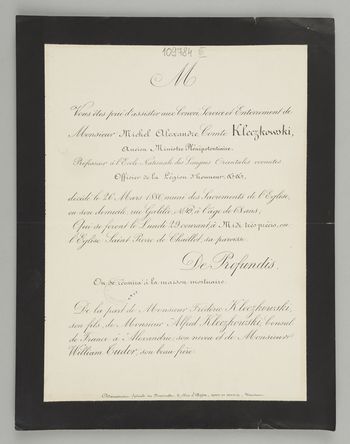 109784 III
M
Vous êtes prié d'assister aux Convoi, Service et Enterrement de
Monsieur Michel Alexandre, Comte Kleczkowski,
Ancien Ministre Plénipotentiaire,
Professeur à l'École Nationale des Langues Orientales vivantes
Officier de la Légion d'honneur,
décédé le 26 Mars 1886 muni des Sacrements de l'Église,
en son domicile, rue Galilée, à l'âge de 68 ans;
Qui se feront le Lundi 29 courant à Midi très précis, en
l'Église Saint Pierre de Chaillot, sa paroisse.
De Profundis.
On se réunira à la maison mortuaire.
De la part de Monsieur Frédéric Kleczkowski,
son fils, de Monsieur Alfred Kleczkowski, Consul
de France à Alexandrie, son neveu et de Monsieur
William Tudor, son beau frère.